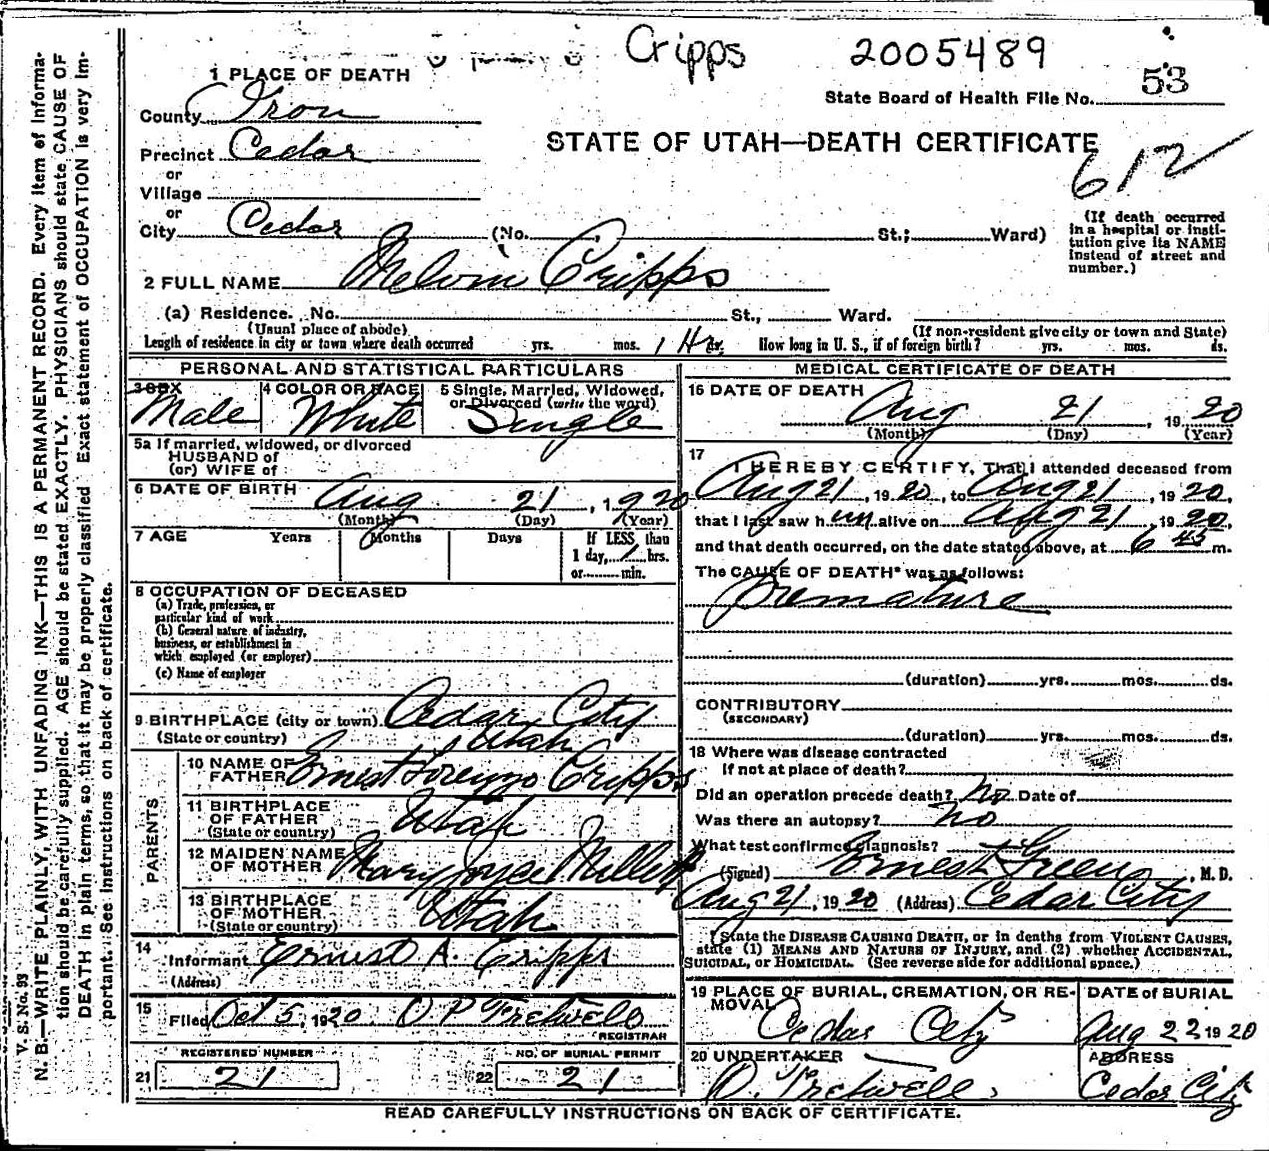 Cripps 2005489
1 PLACE OF DEATH
State Board of Health File No. 53
County Iron
STATE OF UTAH—DEATH CERTIFICATE
Precinct Cedar
612
or
Village
or
City Cedar (No. St.; Ward)
(If death occurred
in a hospital or insti-
tution give its NAME
instead of street and
number.)
2 FULL NAME Melvin Cripps
(a) Residence. No. St., Ward.
(Usual place of abode) (If non-resident give city or town and State)
Length of residence in city or town where death occurred yrs. mos. 1 Hr. How long in U. S., if of foreign birth? yrs. mos. ds.
PERSONAL AND STATISTICAL PARTICULARS
3 SEX 4 COLOR OR RACE 5 Single, Married, Widowed,
or Divorced (write the word)
Male White Single
5a If married, widowed, or divorced
HUSBAND of
(or) WIFE of
6 DATE OF BIRTH Aug 21, 1920
(Month) (Day) (Year)
7 AGE Years Months Days If LESS than
1 day, 1 hrs.
or min.
8 OCCUPATION OF DECEASED
(a) Trade, profession, or
particular kind of work
(b) General nature of industry,
business, or establishment in
which employed (or employer)
(c) Name of employer
9 BIRTHPLACE (city or town) Cedar City
(State or country) Utah
PARENTS
10 NAME OF
FATHER Ernest Lorenzo Cripps
11 BIRTHPLACE
OF FATHER Utah
(State or country)
12 MAIDEN NAME
OF MOTHER Mary Joyce Millett
13 BIRTHPLACE
OF MOTHER Utah
(State or country)
14
Informant Ernest A. Cripps
(Address)
15
Filed Oct 5, 1920. O P Fretwell
REGISTRAR
REGISTERED NUMBER NO. OF BURIAL PERMIT
21 21 22 21
MEDICAL CERTIFICATE OF DEATH
16 DATE OF DEATH
Aug 21, 1920
(Month) (Day) (Year)
17
I HEREBY CERTIFY, That I attended deceased from
Aug 21, 1920, to Aug 21, 1920,
that I last saw him alive on Aug 21 1920,
and that death occurred, on the date stated above, at 6 45 m.
The CAUSE OF DEATH* was as follows:
Premature
(duration) yrs. mos. ds.
CONTRIBUTORY
(SECONDARY)
(duration) yrs. mos. ds.
18 Where was disease contracted
if not at place of death?
Did an operation precede death? No Date of
Was there an autopsy? No
What test confirmed diagnosis?
(Signed) Ernest Green, M. D.
Aug 21, 1920 (Address) Cedar City
(State the DISEASE CAUSING DEATH, or in deaths from VIOLENT CAUSES,
state (1) MEANS AND NATURE OF INJURY, and (2) whether ACCIDENTAL,
SUICIDAL, or HOMICIDAL. (See reverse side for additional space.)
19 PLACE OF BURIAL, CREMATION, OR RE-
MOVAL DATE of BURIAL
Cedar City Aug 22 1920
20 UNDERTAKER ADDRESS
O. Fretwell Cedar City
READ CAREFULLY INSTRUCTIONS ON BACK OF CERTIFICATE.
V. S. No. 93
N. B.—WRITE PLAINLY, WITH UNFADING INK—THIS IS A PERMANENT RECORD. Every item of informa-
tion should be carefully supplied. AGE should be stated EXACTLY. PHYSICIANS should state CAUSE OF
DEATH in plain terms, so that it may be properly classified. Exact statement of OCCUPATION is very im-
portant. See instructions on back of certificate.